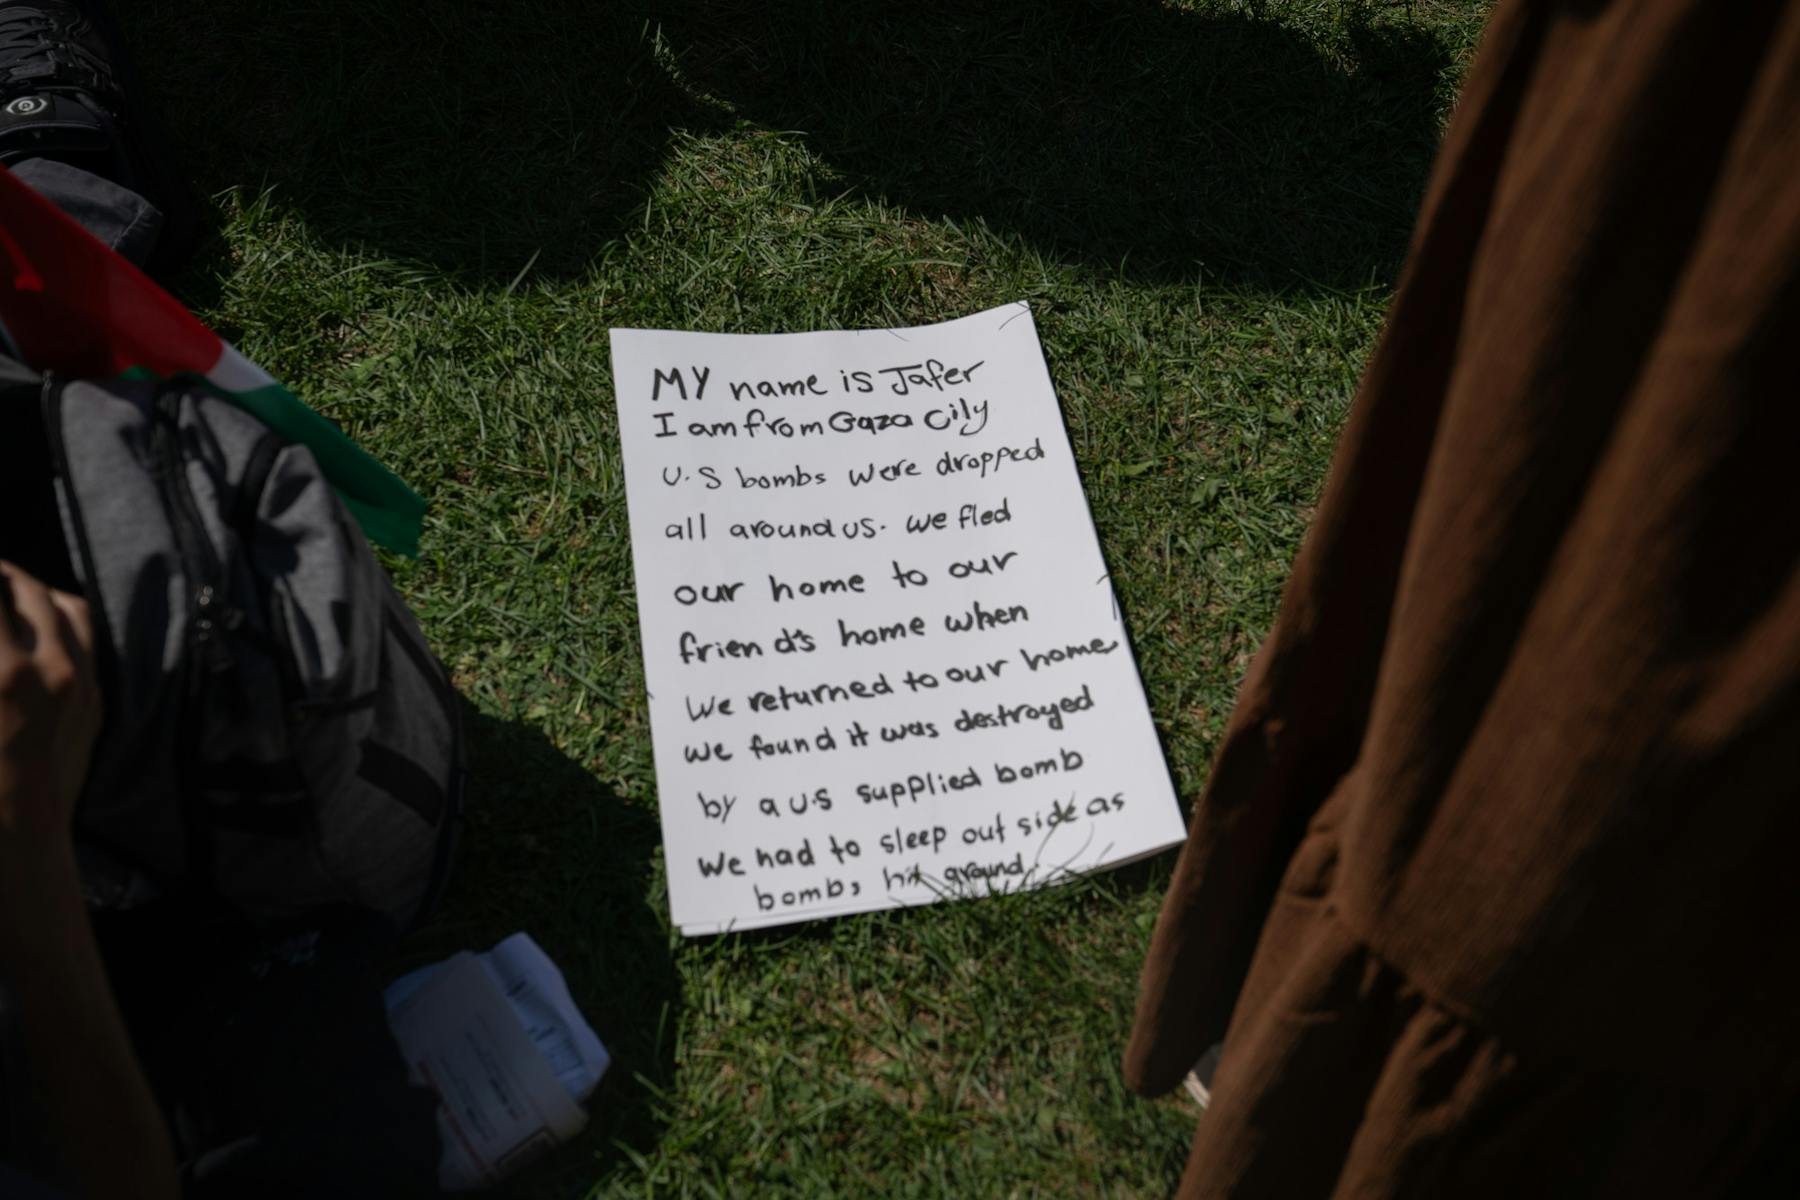 MY name is Jafer
I am from Gaza City
U.S bombs were dropped
all around us. we fled
our home to our
friend's home when
We returned to our home,
we found it was destroyed
by a U.S supplied bomb
We had to sleep out side as
bombs hit around.